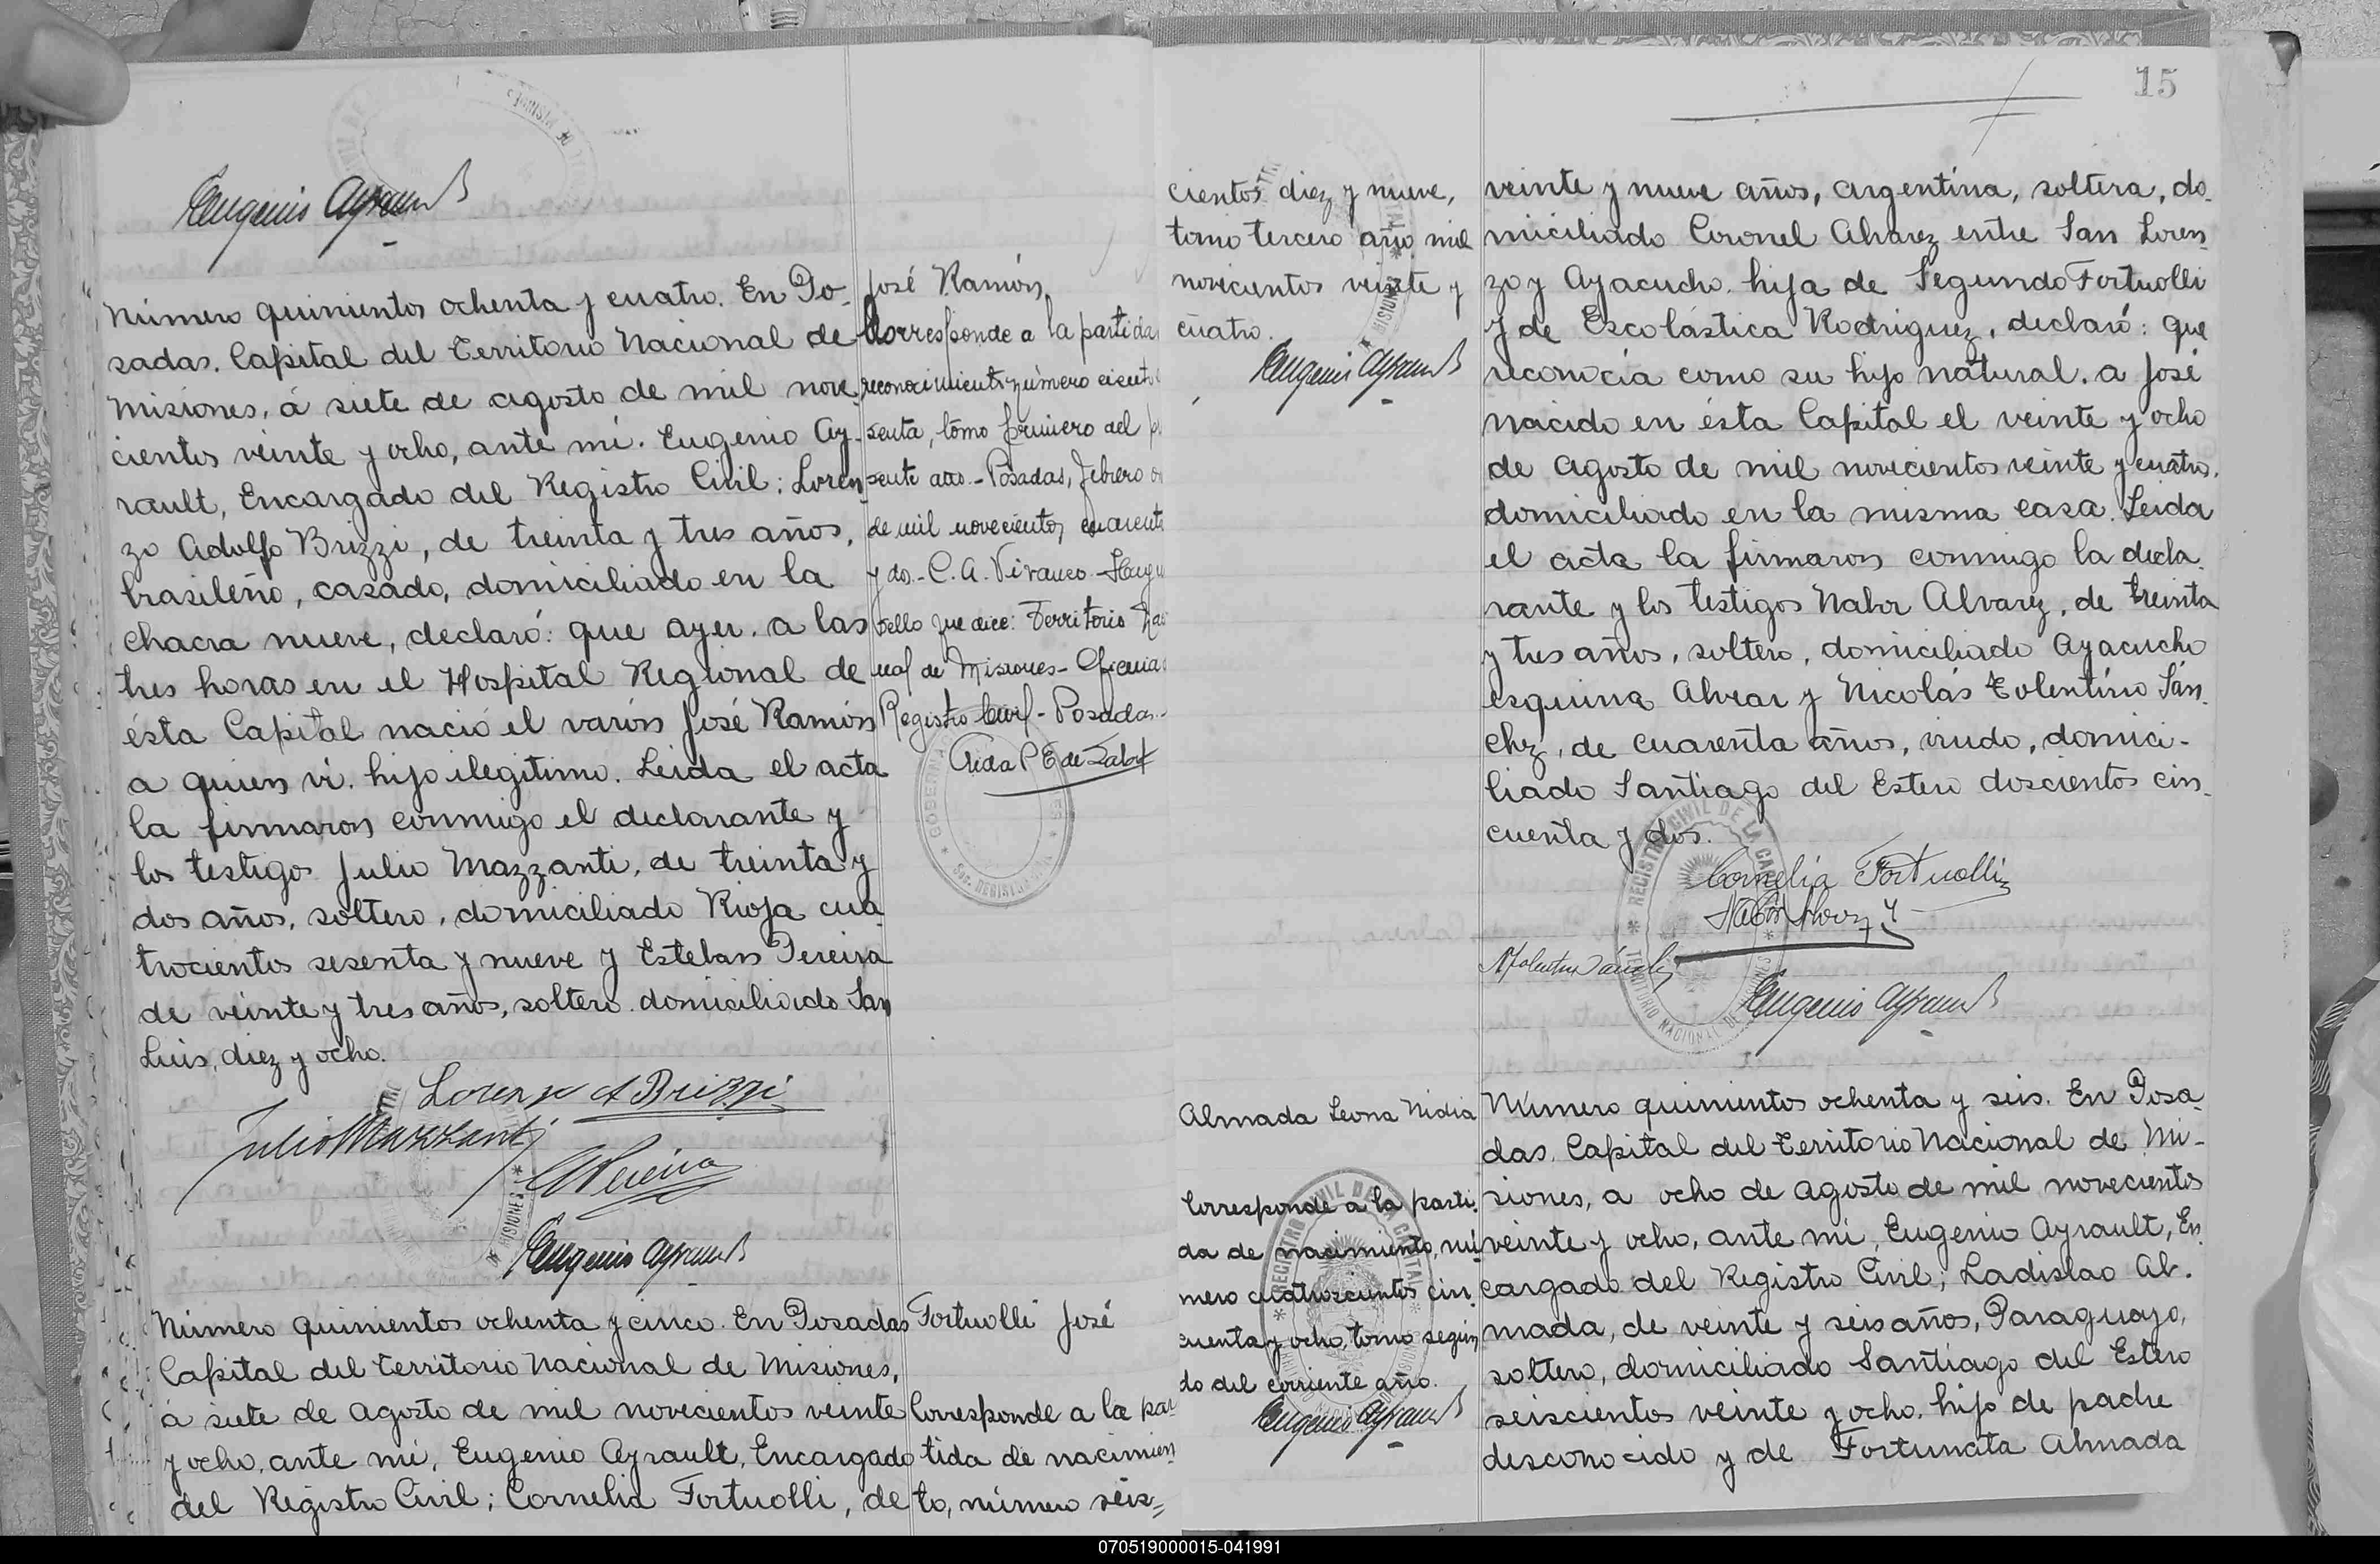 Eugenio Ayrault
Número quinientos ochenta y cuatro. En Po-
sadas. Capital del Territorio Nacional de
Misiones, á siete de agosto de mil nove-
cientos veinte y ocho, ante mí. Eugenio Ay-
rault, Encargado del Registro Civil; Loren-
zo Adolfo Brizzi, de treinta y tres años,
brasileño, casado, domiciliado en la
chacra nueve, declaró: que ayer. a las
tres horas en el Hospital Regional de
ésta Capital nació el varón José Ramón
a quien ví. hijo ilegitimo. Leida el acta
la firmaron conmigo el declarante y
los testigos Julio Mazzanti, de treinta y
dos años, soltero, domiciliado Rioja cua
trocientos sesenta y nueve y Esteban Pereira
de veinte y tres años, soltero. domiciliado San
Luis, diez y ocho.
José Ramón
Corresponde a la partida
reconocimiento número ciento
senta, tomo primero del
sente año.- Posadas, febrero
de mil novecientos cuarenta
y dos.- C. A. Vivanco - Hay
sello que dice: Territorio Na
nal de Misiones - Oficina
Registro Civil - Posadas.-
Aida P E de
Lorenzo A Brizzi
Julio Mazzanti
EPereira
Eugenio Ayrault
Número quinientos ochenta y cinco. En Posadas
Capital del territorio Nacional de Misiones,
á siete de agosto de mil novecientos veinte
y ocho, ante mí, Eugenio Ayrault, Encargado
del Registro Civil; Cornelia Fortuolli, de
Fortuolli José
Corresponde a la par
tida de nacimien
to, número seis=
15
cientos diez y nueve,
tomo tercero año mil
novecientos veinte y
cuatro.
Eugenio Ayrault
veinte y nueve años, argentina, soltera, do-
miciliado Coronel Alvarez entre San Loren-
zo y Ayacucho. hija de Segundo Fortuolli
y de Escolástica Rodriguez, declaró: que
reconocía como su hijo natural. a José
nacido en ésta Capital el veinte y ocho
de agosto de mil novecientos veinte y cuatro.
domiciliado en la misma casa. Leida
el acta la firmaron conmigo la decla-
rante y los testigos Nabor Alvarez, de treinta
y tres años, soltero, domiciliado Ayacucho
esquina Alvear y Nicolás Tolentino Sán-
chez, de cuarenta años, viudo, domici-
liado Santiago del Estero doscientos cin-
cuenta y dos.
REGISTRO CIVIL DE LA CAPITAL
TERRITORIO NACIONAL DE MISIONES
Cornelia Fortuolli
Eugenio Ayrault
Almada Leona Nidia
Corresponde a la parti-
da de nacimiento, nú-
mero cuatrocientos cin-
cuenta y ocho, tomo segun
do del corriente año.
Eugenio Ayrault
Número quinientos ochenta y seis. En Posa-
das. Capital del Territorio Nacional de Mi-
siones, a ocho de agosto de mil novecientos
veinte y ocho, ante mí, Eugenio Ayrault, En-
cargado del Registro Civil; Ladislao Al-
mada, de veinte y seis años, Paraguayo,
soltero, domiciliado Santiago del Estero
seiscientos veinte y ocho, hijo de padre
desconocido y de Fortunata Almada
070519000015-041991